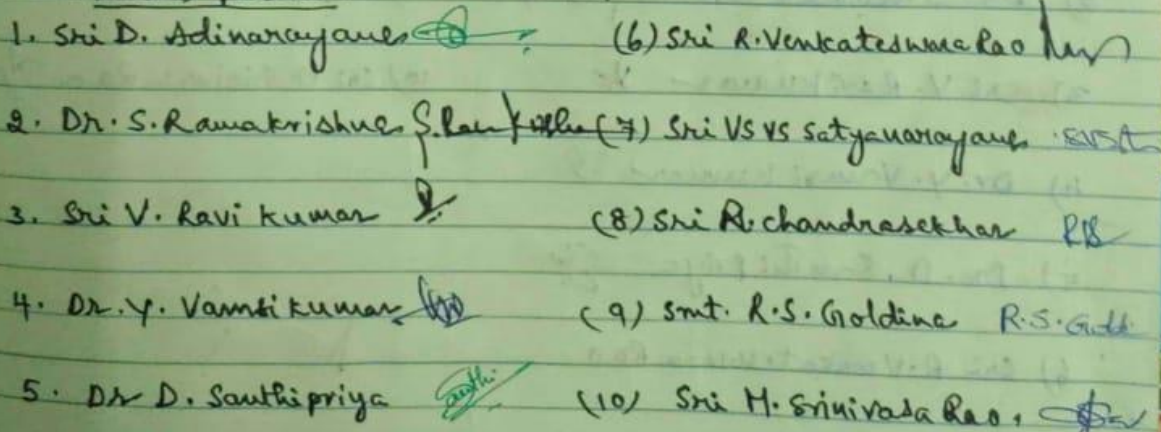 1. Sri D. Adinarayana
2. Dr. S. Ramakrishna S. Ramakrishna
3. Sri V. Ravi kumar
4. Dr. Y. Vamsi kumar
5. Dr D. Santhipriya Santhi
(6) Sri R. Venkateswara Rao
(7) Sri VS VS Satyanarayana
(8) Sri R. chandrasekhar
(9) Smt. R.S. Goldina R.S. Gold
(10) Sri M. Srinivasa Rao.